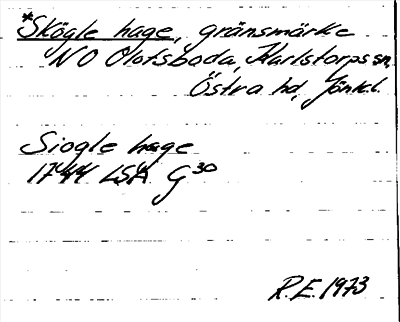 *Skögle hage, gränsmärke
NO Olofsboda, Karlstorps sn,
Östra hd, Jönk.l.
Siogle hage
1744 LSA G30
R.E. 1973